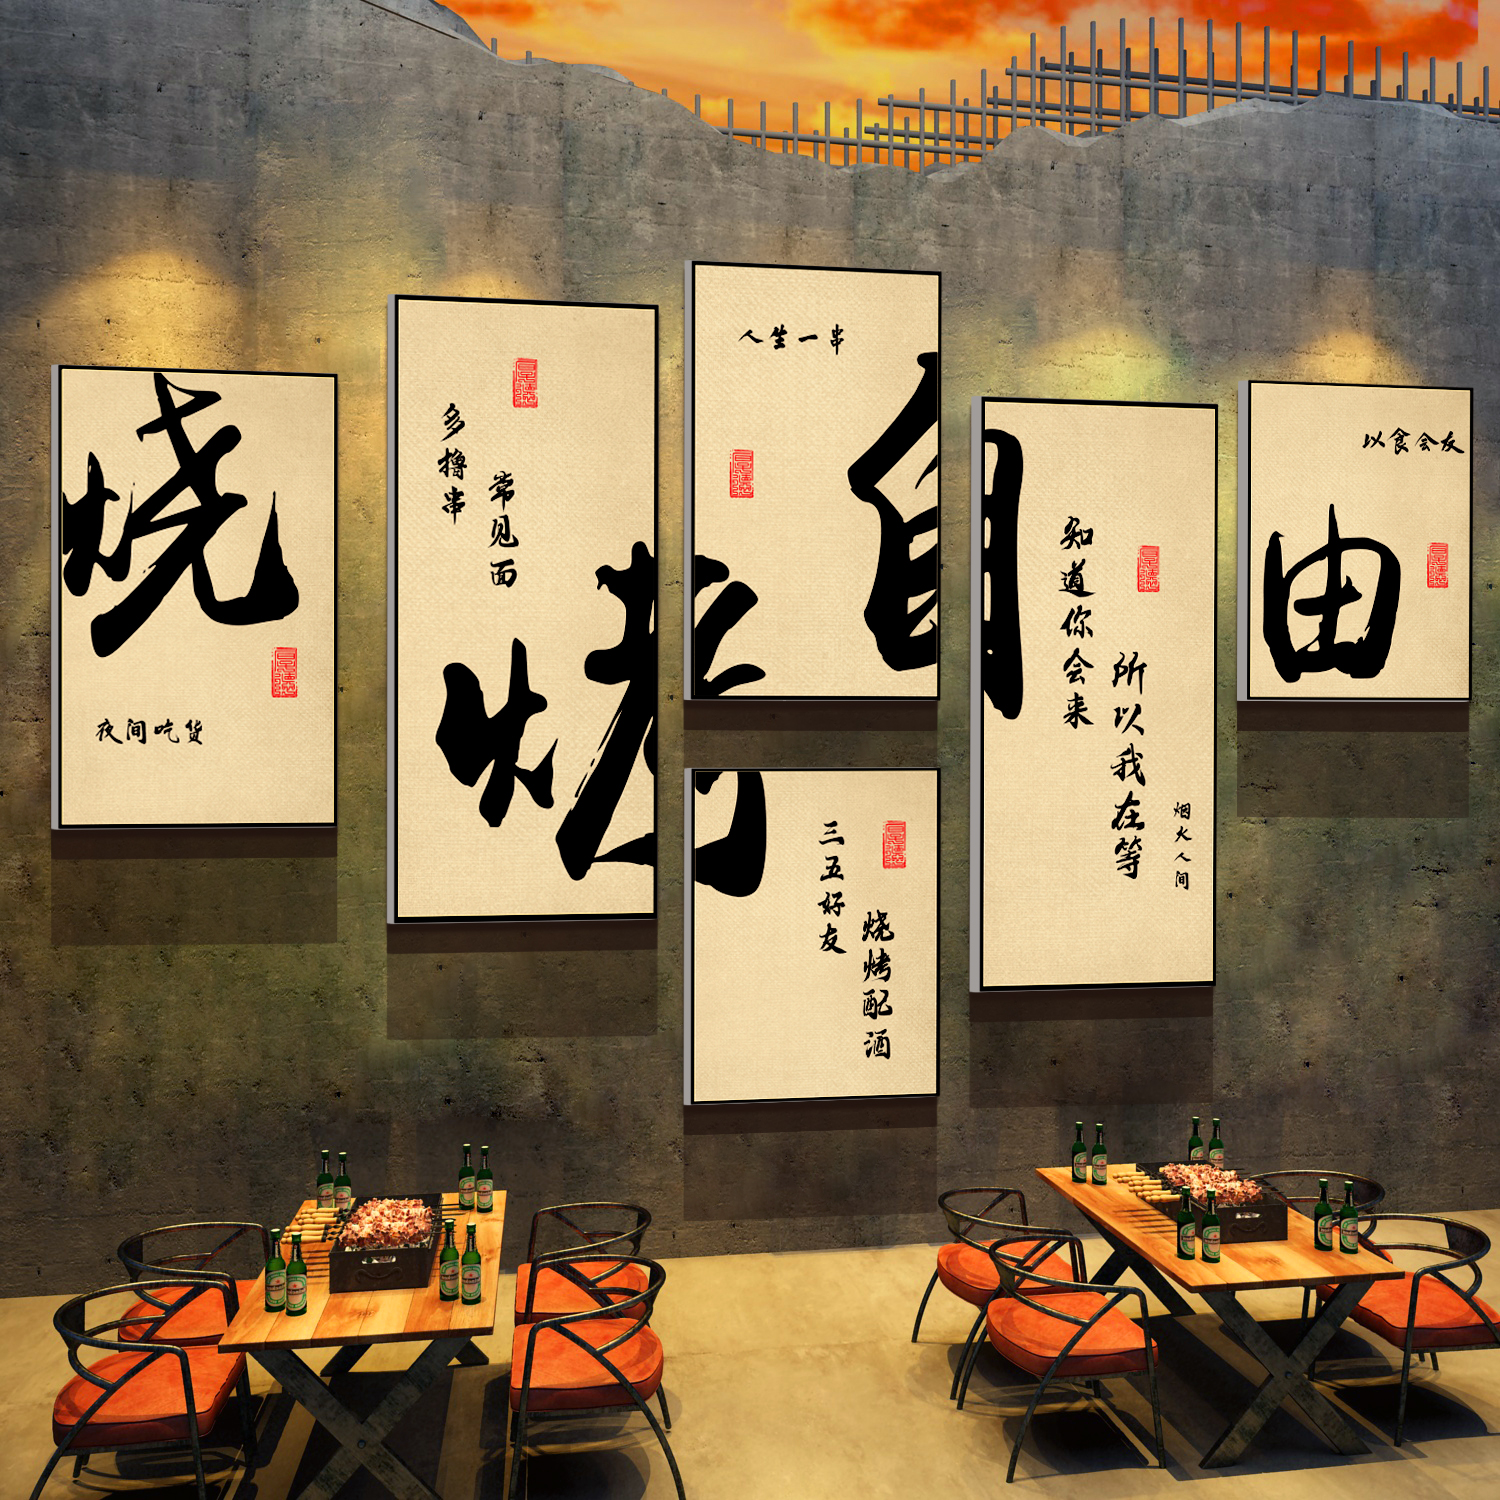 烧
夜间吃货
多撸串
常见面
烤
人生一串
自
三五好友
烧烤配酒
知道你会来
所以我在等
烟火人间
以食会友
由